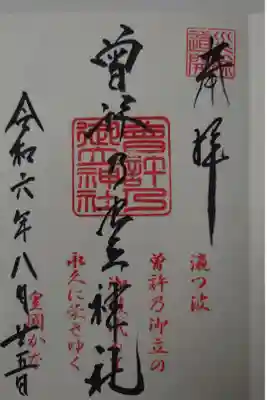 奉拝
瀧つ波
曽許乃御立の
曽許乃御立神社
曾許乃
御立神社
永久に栄さゆく
令和六年八月廿五日